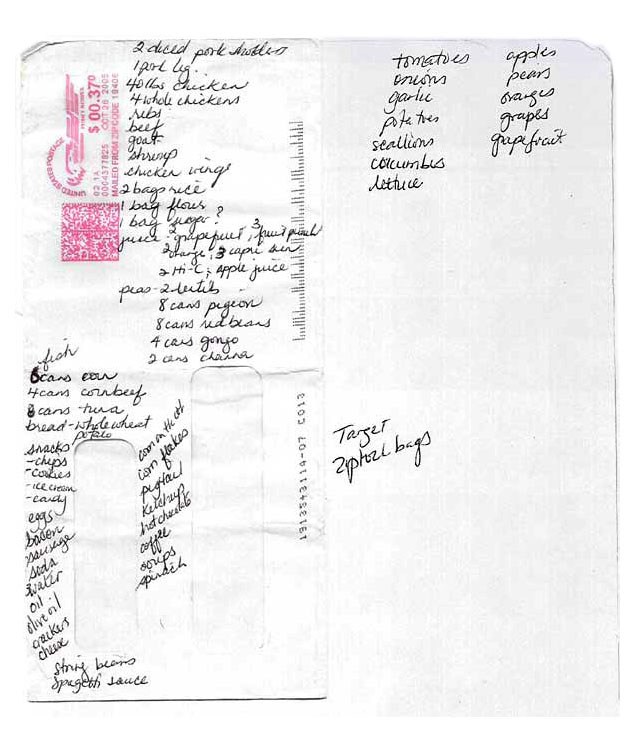 2 diced pork shoulders
1 pork leg
40 lbs chicken
4 whole chickens
ribs
beef
goat
shrimp
chicken wings
2 bags rice
1 bag flour
1 bag sugar ?
juice 2 grapefruit, 3 fruit punch
2 orange, 3 capri sun
2 Hi-C, apple juice
peas - 2 lentils
8 cans pigeon
8 cans red beans
4 cans gongo
2 cans channa
fish
cans corn
4 cans cornbeef
8 cans tuna
bread - whole wheat
potato
snacks
- chips
- cookies
- ice cream
- candy
eggs
bacon
sausage
soda
water
oil
olive oil
crackers
cheese
string beans
spagetti sauce
corn on the cob
corn flakes
pigtail
ketchup
hot chocolate
coffee
soups
spinach
UNITED STATES POSTAGE
PITNEY BOWES
02 1A
$ 00.370
0004377825 OCT 26 2005
MAILED FROM ZIP CODE 19406
1913343114-07 C013
tomatoes
onions
garlic
potatoes
scallions
cucumbes
lettuce
apples
pears
oranges
grapes
grapefruit
Target
Ziplock bags